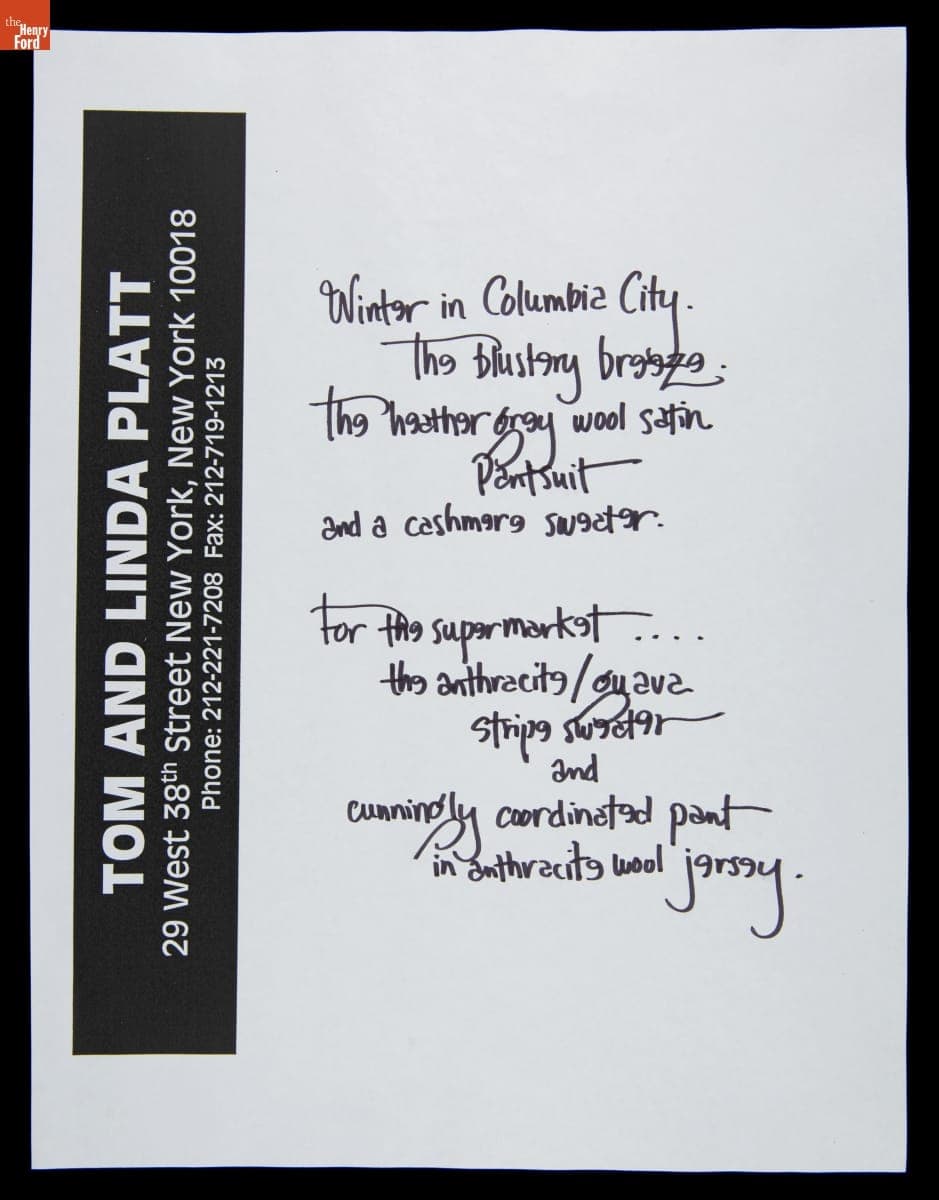 the
Henry
Ford
TOM AND LINDA PLATT
29 West 38th Street New York, New York 10018
Phone: 212-221-7208 Fax: 212-719-1213
Winter in Columbia City.
The blustery breeze;
The heather grey wool satin
Pantsuit
and a cashmere sweater.
For the supermarket ....
the anthracite/guava
stripe sweater
and
cunningly coordinated pant
in anthracite wool jersey.